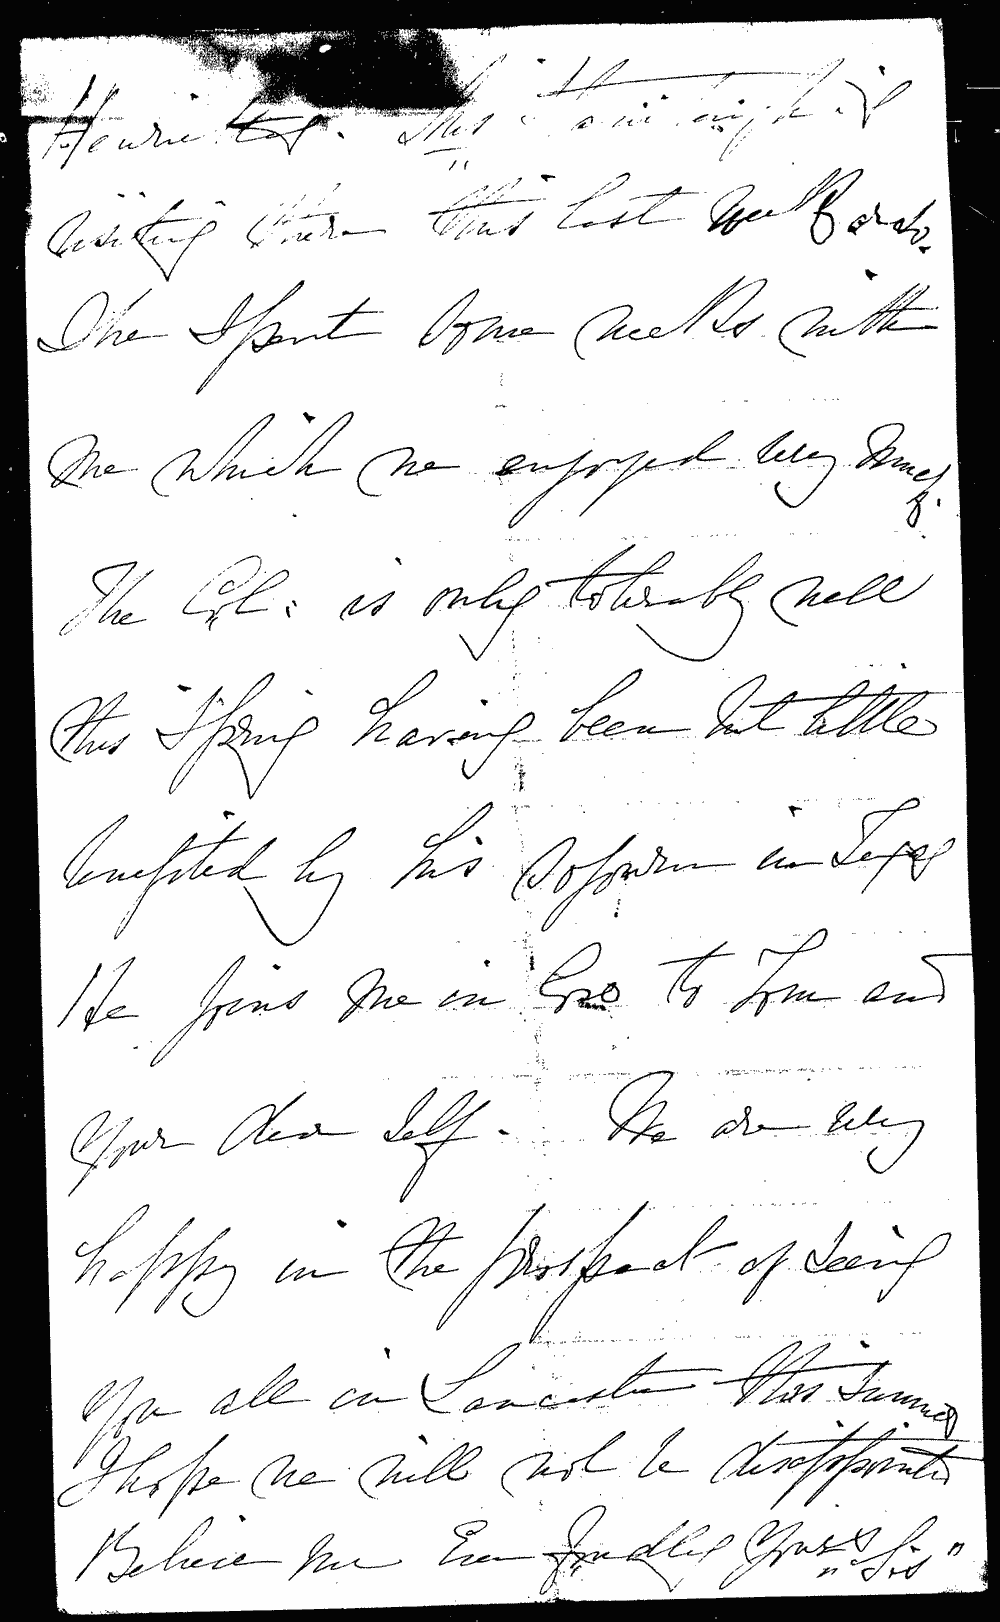 Henrietta. She is
visiting there this last week or so.
She Spent some weeks with
me which we enjoyed very much.
The Col: is only tolerably well
this Spring having been but little
benefited by his sojourn in Texas
He joins me in love to Tom and
your dear Self. We are very
happy in the prospect of seeing
you all in Lancaster this summer
I hope we will not be disappointed
Believe me Ever fondly Yours "Sis"